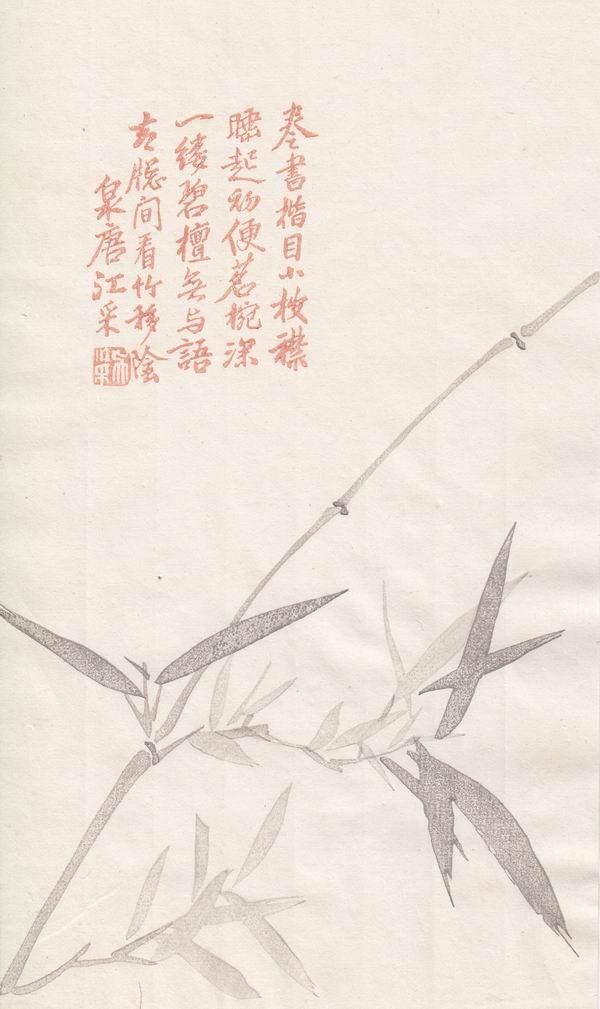 卷書揩目小披襟
睡起初便茗椀深
一縷碧檀無与語
牕間看竹移陰
泉唐江采